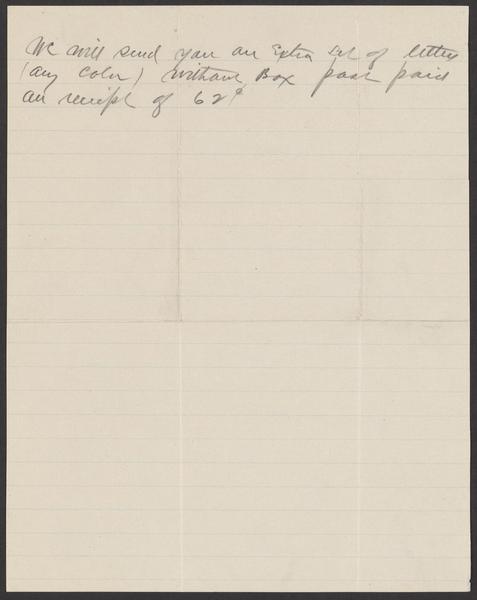 We will send you an Extra Set of letters
(any Color) without Box post paid
on receipt of 62¢